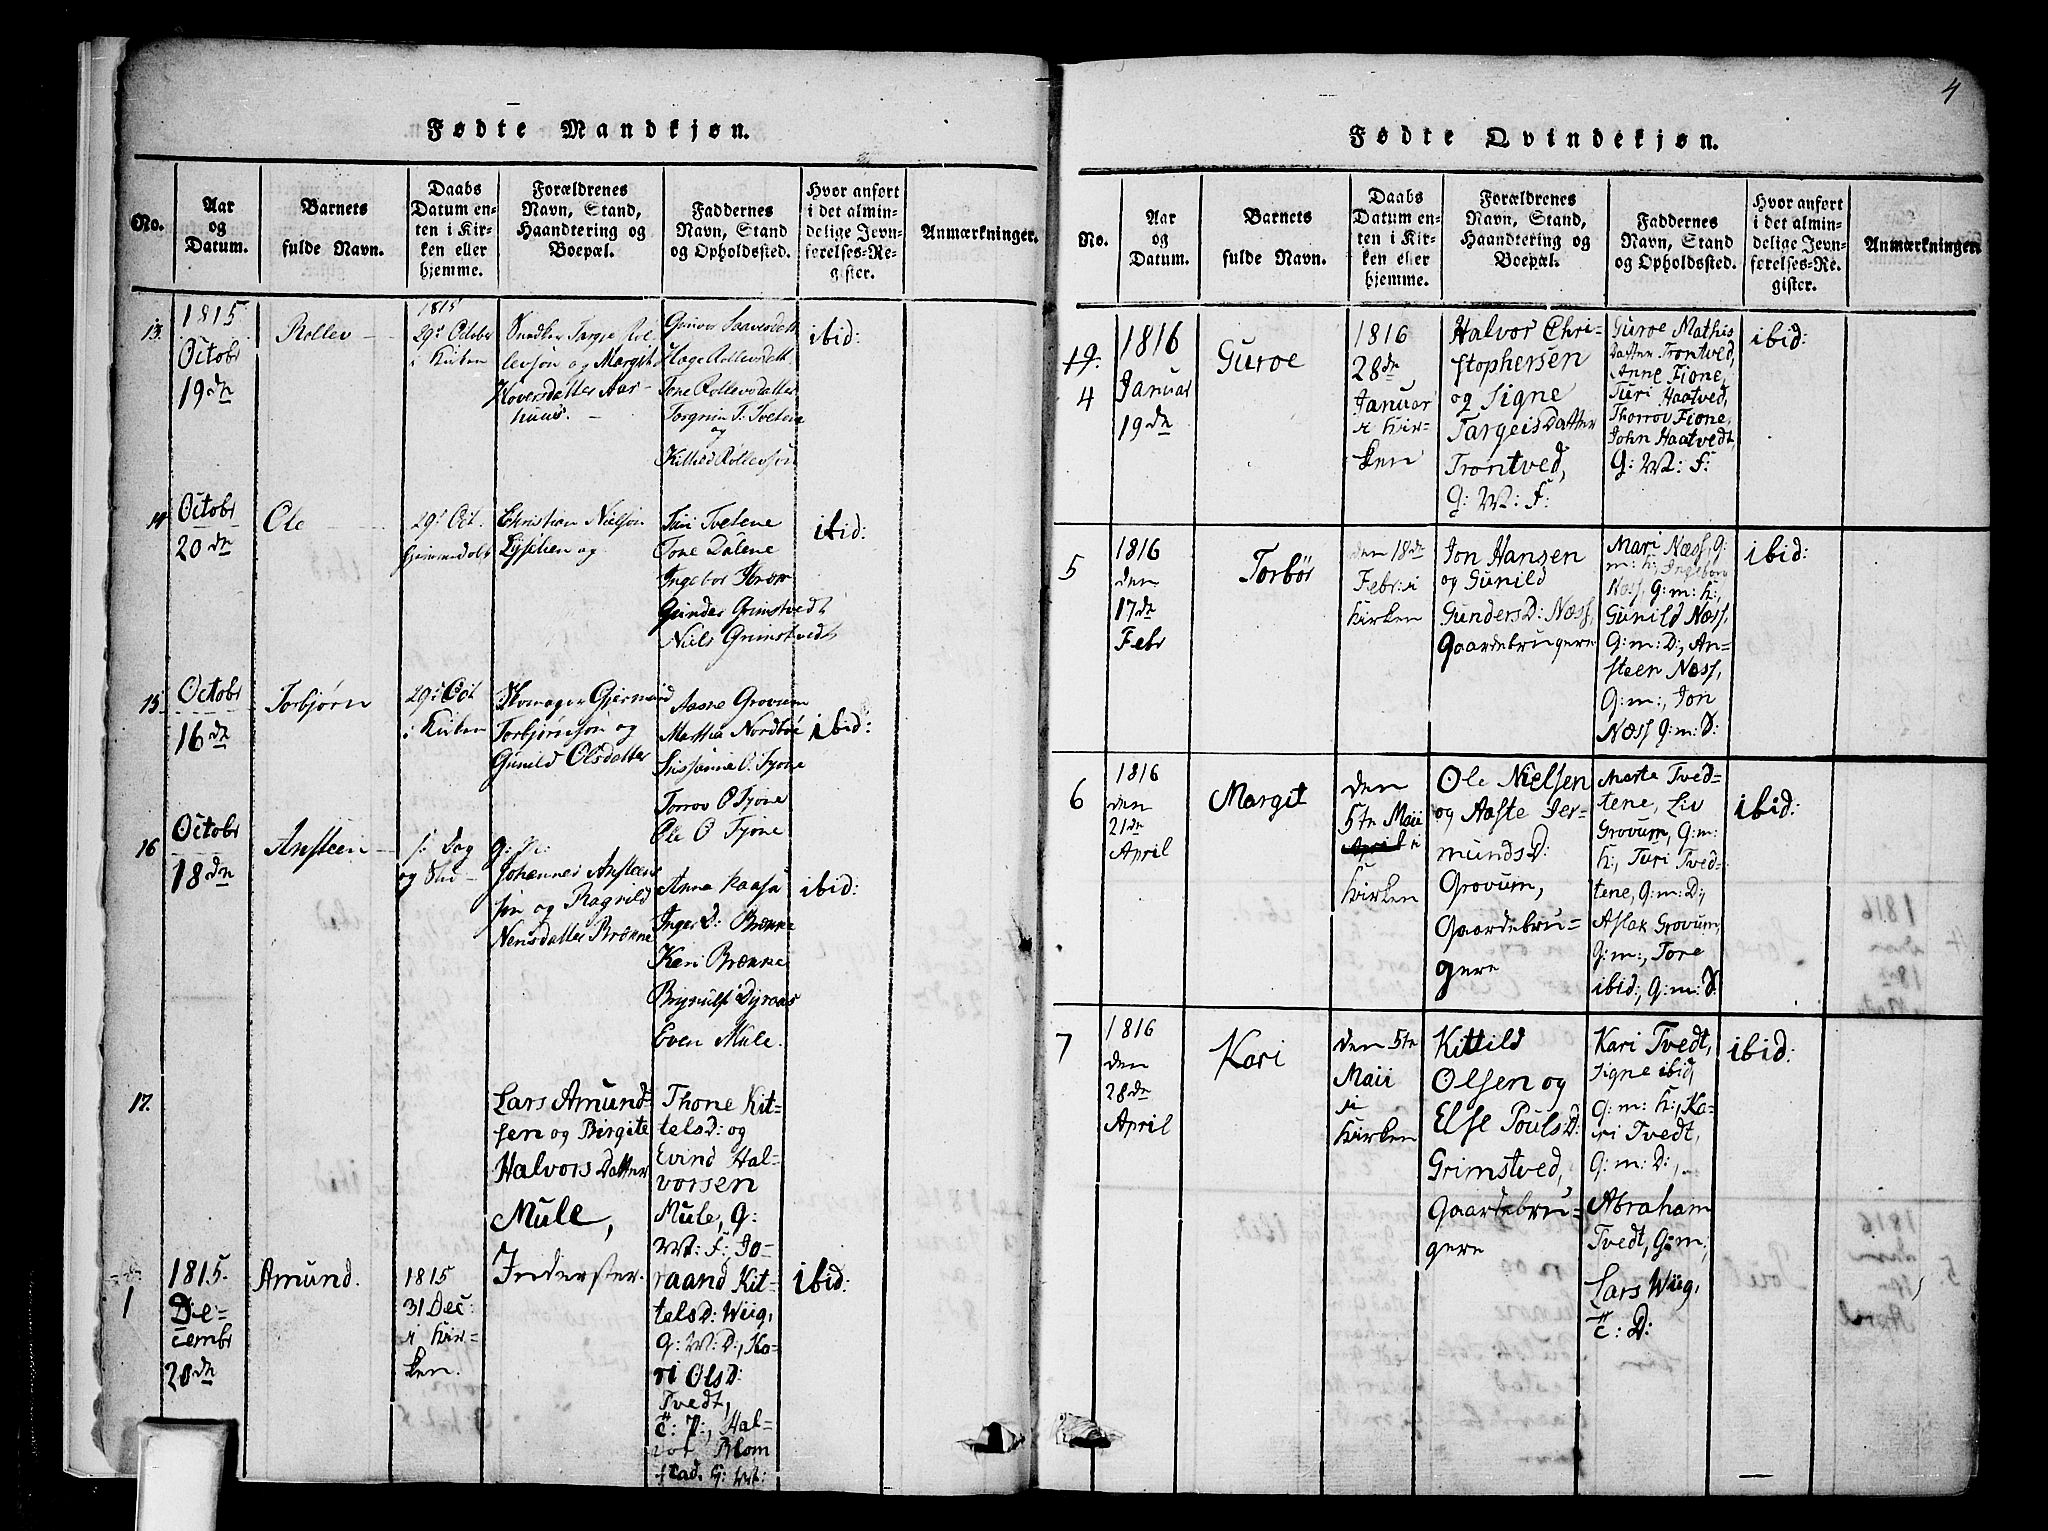 4
Fødte Mandkjøn.
No.
Aar
og
Datum.
Barnets
fulde Navn.
Daabs
Datum en-
ten i Kir-
ken eller
hjemme.
Forældrenes
Navn, Stand,
Haandtering og
Boepæl.
Faddernes
Navn, Stand
og Opholdssted.
Hvor anført
i det almin-
delige Jevn-
førelses-Re-
gister.
Anmærkninger.
13.
1815
Octobr
19dn
Rollev
1815
29d Octobr
i Kirken
Snedker Targie Rol-
levsøn og Margit
Hoversdatter Aar-
huus.
Gunvor Saavesdatt
Hage Rollevsdatt
Tone Rollevsdatter
Torgrim T. Tvetene
og
Kittild Rollevsøn
ibid:
14
Octobr
20dn
Ole
29d Oct.
Christian Nielsøn
og
Turi Tvetene
Tone Dalene
Ingebor
Gunder Grimstvedt
Niels Grimstvedt
ibid:
15.
Octobr
16dn
Torbjørn
29d Oct
i Kirken
Skomager Gjermund
Torbjørnsøn og
Gunild Olsdatter
Aasne Grovum
Mathia Nordbøe
O. Fjone
Torrov O Fjone
Ole O Fjone
ibid:
16
Octobr
18dn
Ansteen
s: Dag
og Sted
g: m:
Johannes Ansteen-
søn og Ragnild
Nensdatter Brøkne
Anna Kaasa
Inger D: Brække
Kari Brække
Brynulf Dyraas
Even Mule.
ibid:
17.
1
1815.
De-
cembr
20dn
Amund.
1815
31 Dec:
i Kir-
ken.
Lars Amund-
sen og Birgite
Halvors Datter
Mule,
Inderster.
Thone Kit-
telsd: og
Evind Hal-
vorsen
Mule, G:
W: F:, Jo-
raand Kit-
telsd: Wiig,
G: W: D:, Ka-
ri Olsd:
Tvedt,
Hal-
vor Blom
stad. G: W:
ibid:
Fødte Qvindekjøn.
No.
Aar
og
Datum.
Barnets
fulde Navn.
Daabs
Datum en-
ten i Kir-
ken eller
hjemme.
Forældrenes
Navn, Stand,
Haandtering og
Boepæl.
Faddernes
Navn, Stand
og Opholdssted.
Hvor anført
i det almin-
delige Jevn-
førelses-Re-
gister.
Anmærkninger.
19.
4
1816
Januar
19dn
Guroe
1816
28dn
Januar
i Kir-
ken
Halvor Chri-
stophersen
og Signe
Targeis Datter
Trontved,
G: W: F:
Guroe Mathis
Datter Trontved,
Anne Fione,
Turi Haatved,
Thorrov Fione,
John Haatvedt,
G: W: F:
ibid:
5
1816
den
17dn
Febr
Torbør
den 18dn
Febr: i
Kirken
Jon Hansen
og Gunild
Gundersd: Næss,
Gaardebrugere
Mari Næss, G:
m: K:, Ingeborg
Næss, G: m: K:,
Gunild Næss,
G: m: D:, An-
steen Næss,
G: m:, Jon
Næss G: m: D:
ibid:
6
1816
den
21dn
April
Margit
den
5tn Maii
April i
Kirken
Ole Nielsen
og Aaste Jer-
mundsD:
Grovum,
Gaardebru-
gere
Marte Tved-
tene, Liv
Grovum, G: m:
K:, Turi Tved-
tene, G: m: D:,
Aslak Grovum,
G: m:, Tore
ibid:, G: m: D:
ibid:
7
1816
den
28dn
April
Kari
den 5tn
Maii
i
Kirken
Kittild
Olsen og
Else PoulsD:
Grimstved,
Gaardebru-
gere
Kari Tvedt,
Signe ibid,
G: m: K:, Ka-
ri Tvedt,
G: m: D:,
Abraham
Tvedt, G: m:,
Lars Wiig,
ibid: